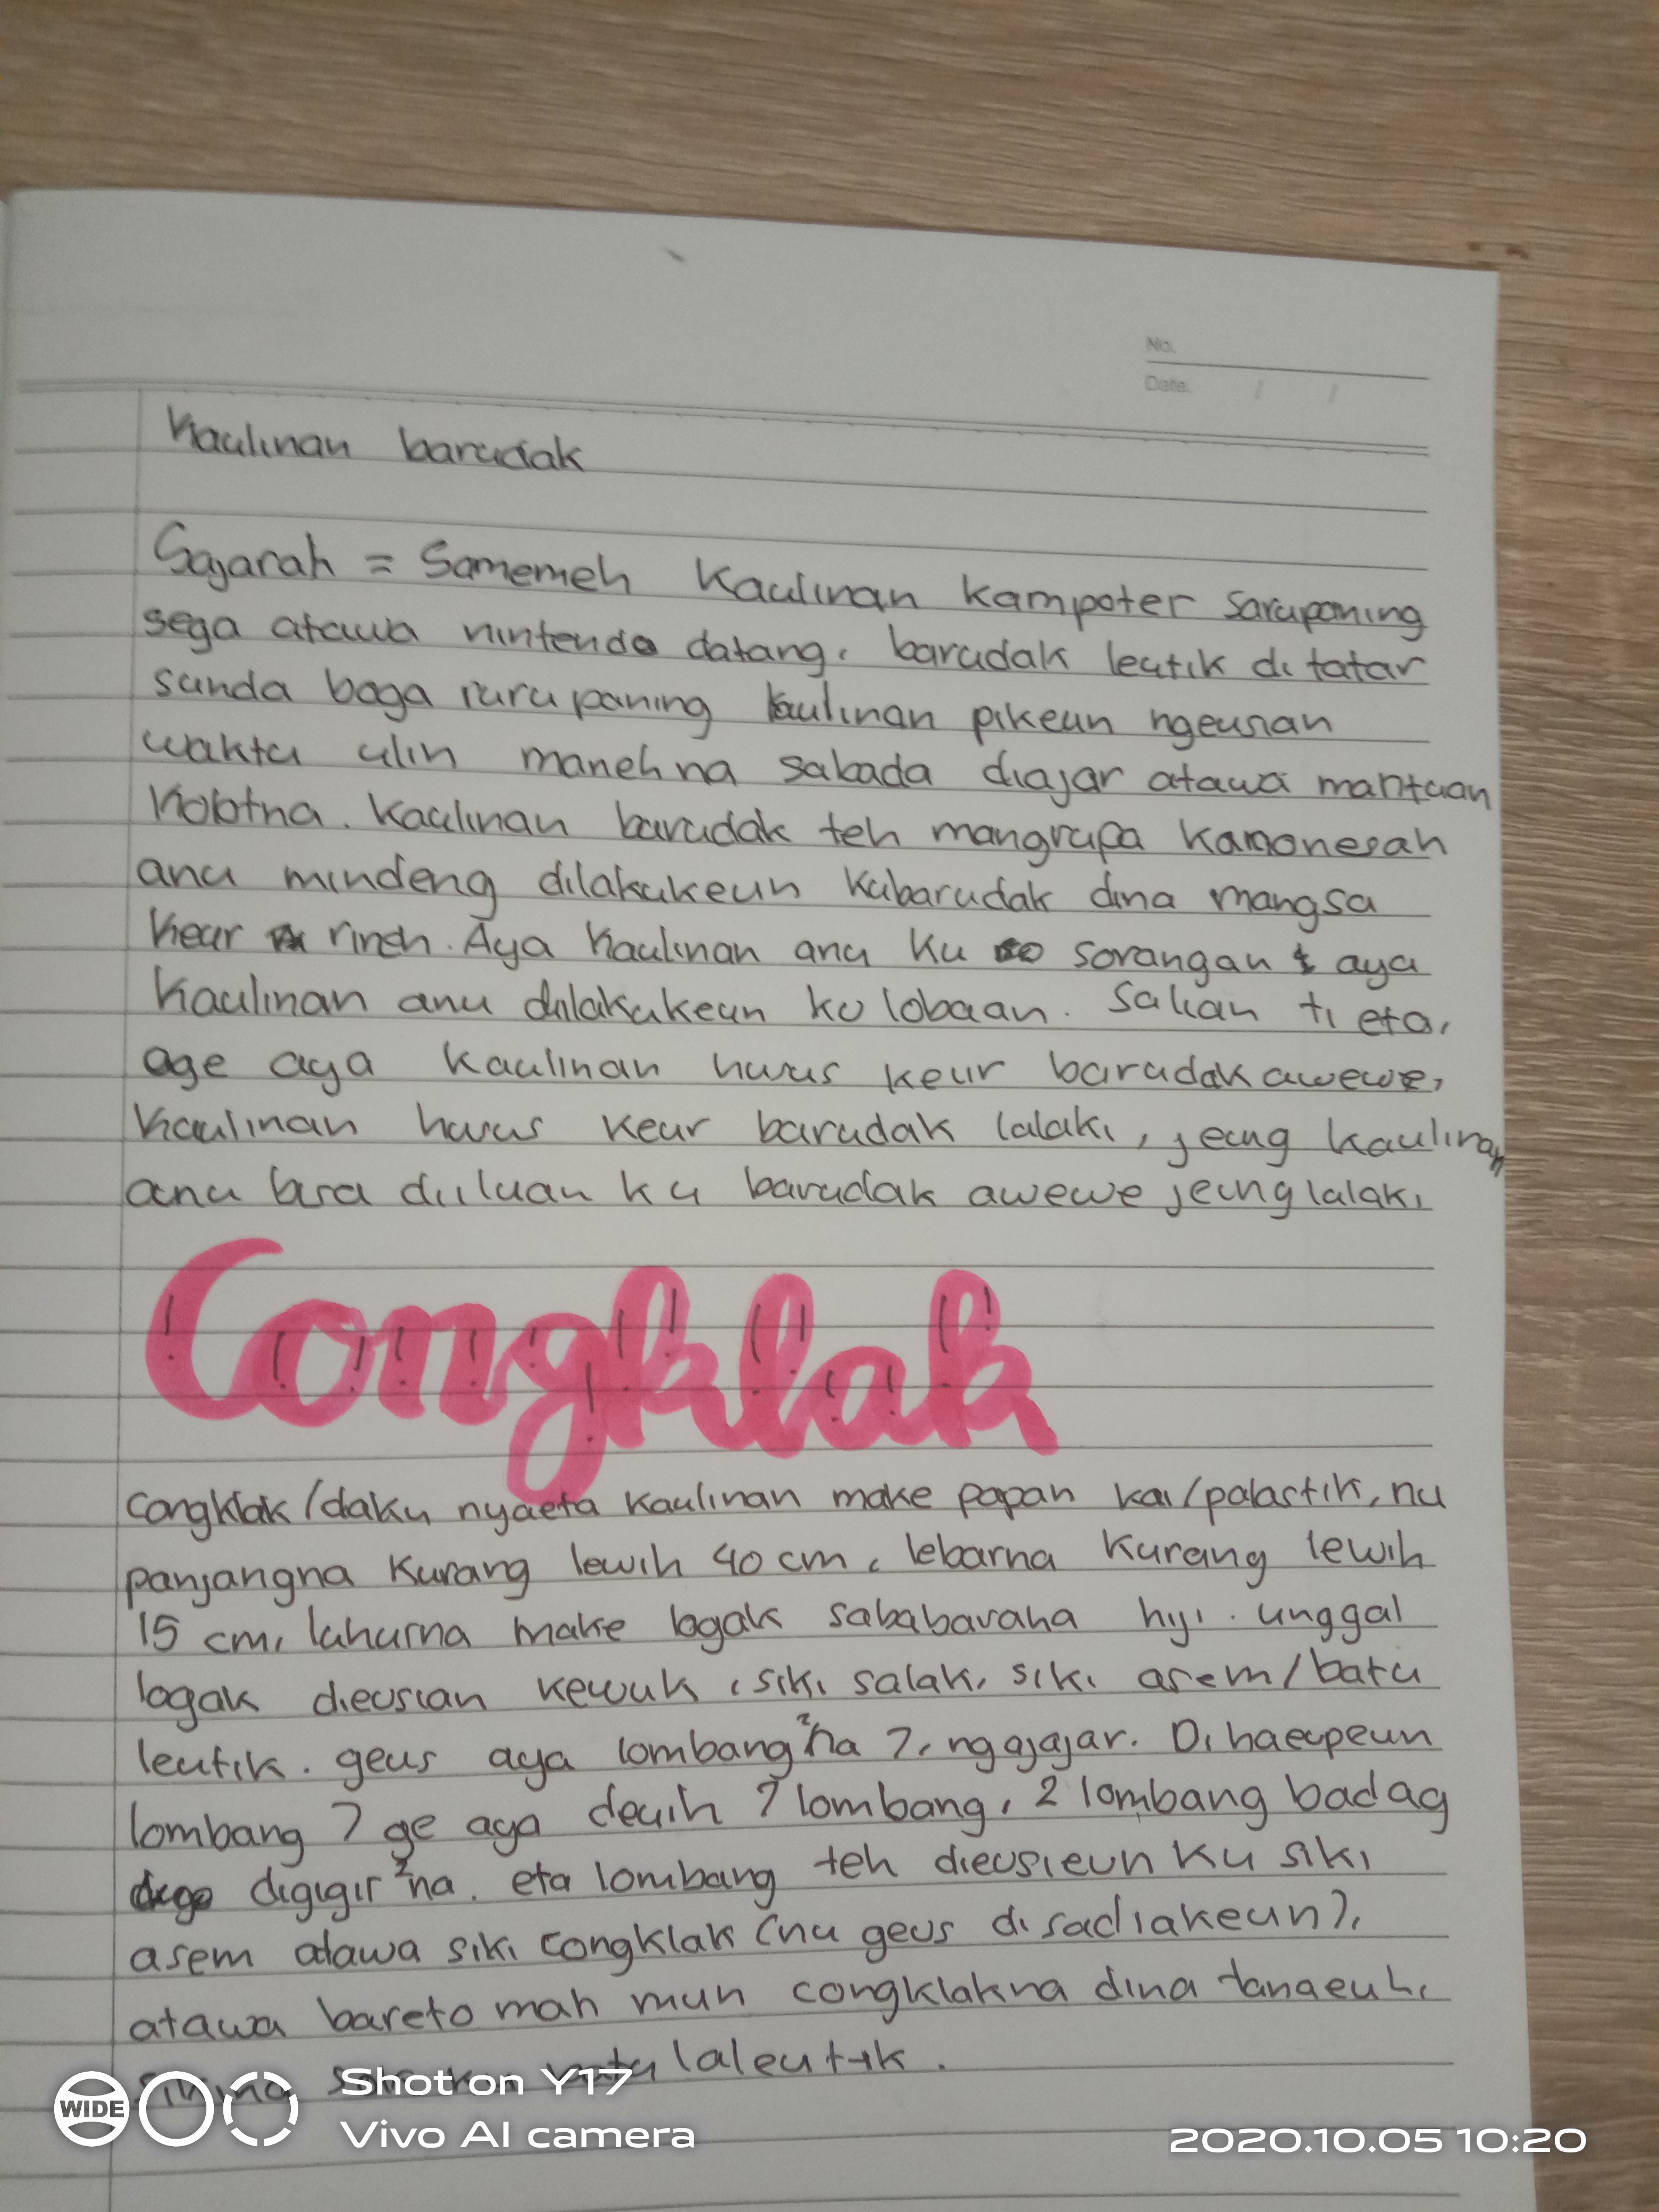 No.
Date.
Kaulinan barudak
Sajarah = Samemeh Kaulinan Kampoter saruponing
sega atawa nintendo datang, barudak leutik di tatar
sunda boga rurupaning kaulinan pikeun ngeusian
waktu ulin manehna sabada diajar atawa mantuan
Kolotna. Kaulinan barudak teh mangrupa
anu mindeng dilakukeun kubarudak dina mangsa
keur rineh. Aya kaulinan anu ku sorangan & aya
kaulinan anu dilakukeun ku lobaan. Salian ti eta,
oge aya kaulinan husus keur barudak awewe,
kaulinan husus keur barudak lalaki, jeung kaulinan
anu bisa diiluan ku barudak awewe jeung lalaki
Congklak
congklak/daku nyaeta kaulinan make papan kai/palastik, nu
panjangna kurang lewih 40 cm, lebarna kurang lewih
15 cm, luhurna make logak sababaraha hiji. unggal
logak dieusian kewuk, siki salak, siki asem/batu
leutik. geus aya lombang²na 7, ngajajar. Dihaeupeun
lombang 7 ge aya deuih 7 lombang, 2 lombang badag
digigir²na. eta lombang teh dieusieun ku siki
asem atawa siki congklak (nu geus disadiakeun),
atawa bareto mah mun congklakna dina taneuh,
laleutik.
WIDE
Shot on Y17
Vivo AI camera
2020.10.05 10:20